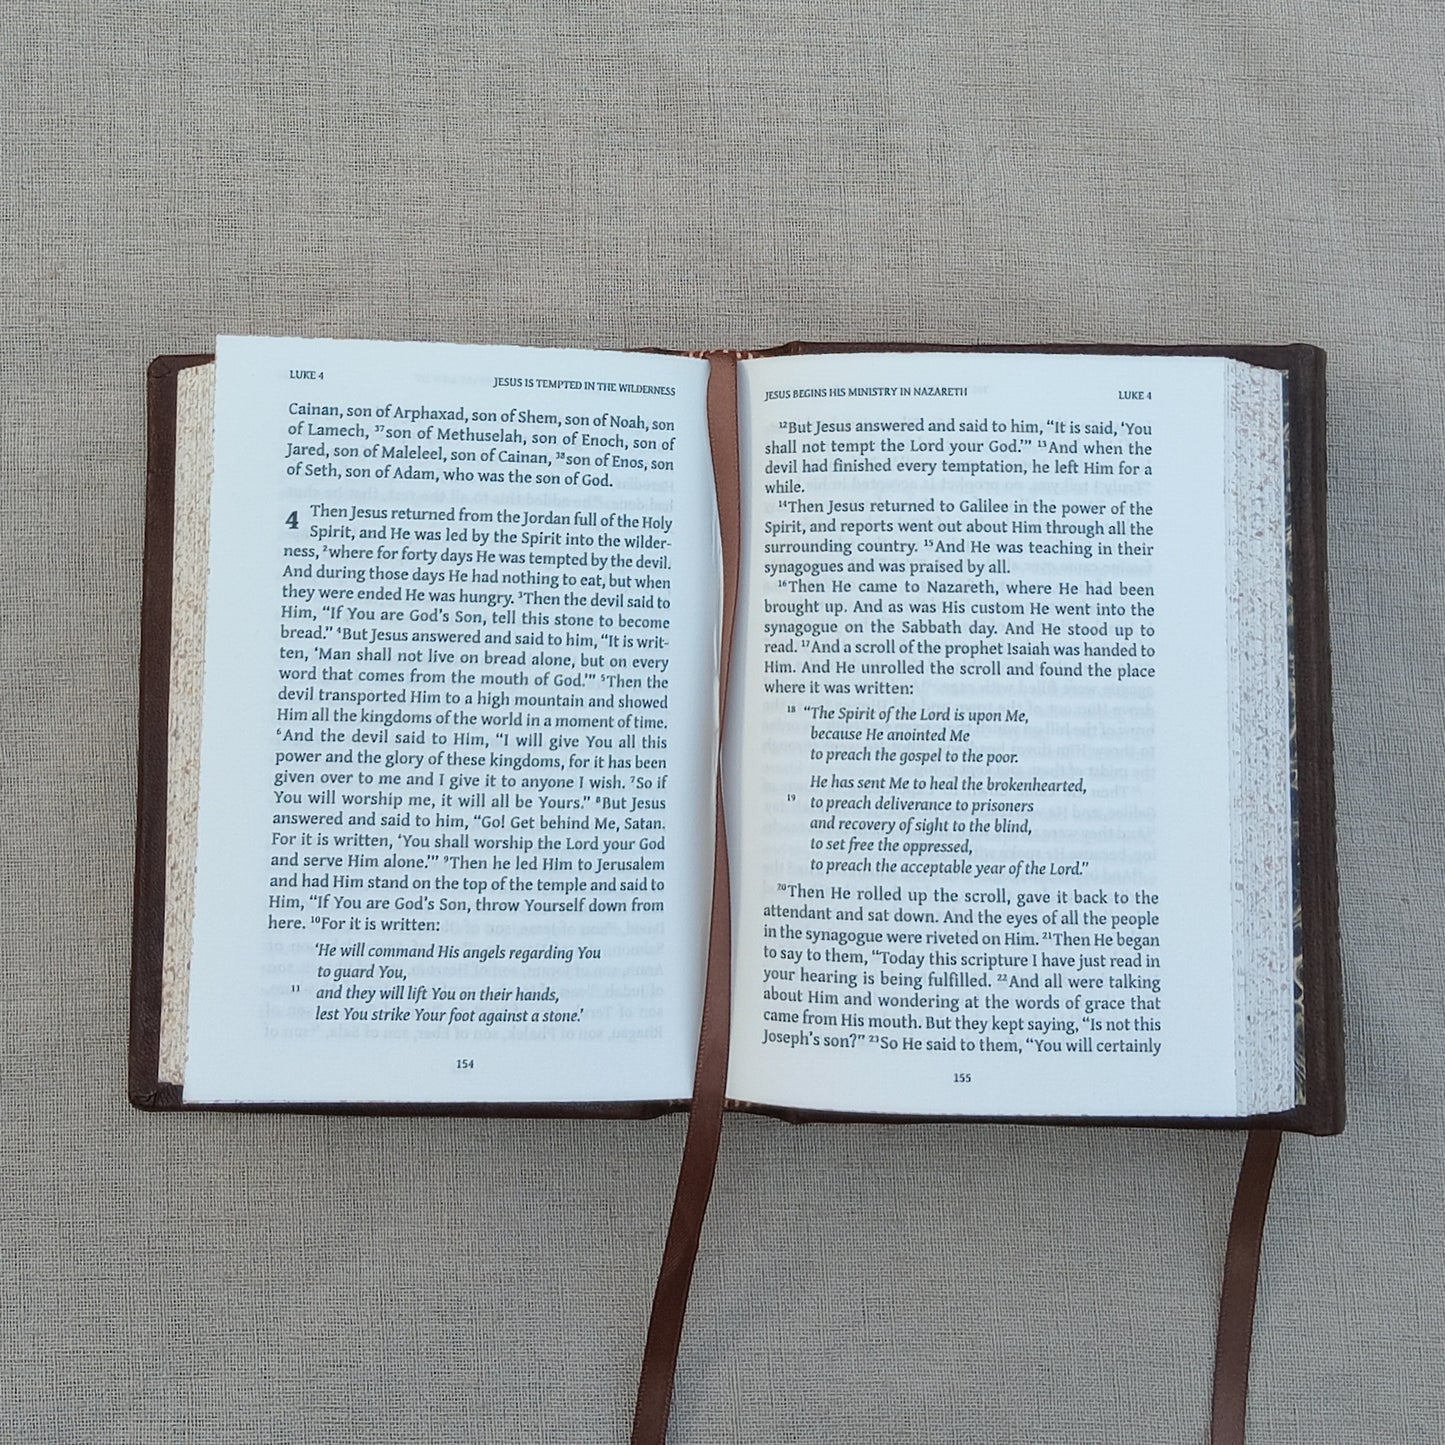 LUKE 4
JESUS IS TEMPTED IN THE WILDERNESS
Cainan, son of Arphaxad, son of Shem, son of Noah, son
of Lamech, ³⁷son of Methuselah, son of Enoch, son of
Jared, son of Maleleel, son of Cainan, ³⁸son of Enos, son
of Seth, son of Adam, who was the son of God.
4 Then Jesus returned from the Jordan full of the Holy
Spirit, and He was led by the Spirit into the wilder-
ness, ²where for forty days He was tempted by the devil.
And during those days He had nothing to eat, but when
they were ended He was hungry. ³Then the devil said to
Him, “If You are God’s Son, tell this stone to become
bread.” ⁴But Jesus answered and said to him, “It is writ-
ten, ‘Man shall not live on bread alone, but on every
word that comes from the mouth of God.’” ⁵Then the
devil transported Him to a high mountain and showed
Him all the kingdoms of the world in a moment of time.
⁶And the devil said to Him, “I will give You all this
power and the glory of these kingdoms, for it has been
given over to me and I give it to anyone I wish. ⁷So if
You will worship me, it will all be Yours.” ⁸But Jesus
answered and said to him, “Go! Get behind Me, Satan.
For it is written, ‘You shall worship the Lord your God
and serve Him alone.’” ⁹Then he led Him to Jerusalem
and had Him stand on the top of the temple and said to
Him, “If You are God’s Son, throw Yourself down from
here. ¹⁰For it is written:
‘He will command His angels regarding You
to guard You,
¹¹ and they will lift You on their hands,
lest You strike Your foot against a stone.’
154
JESUS BEGINS HIS MINISTRY IN NAZARETH
LUKE 4
¹²But Jesus answered and said to him, “It is said, ‘You
shall not tempt the Lord your God.’” ¹³And when the
devil had finished every temptation, he left Him for a
while.
¹⁴Then Jesus returned to Galilee in the power of the
Spirit, and reports went out about Him through all the
surrounding country. ¹⁵And He was teaching in their
synagogues and was praised by all.
¹⁶Then He came to Nazareth, where He had been
brought up. And as was His custom He went into the
synagogue on the Sabbath day. And He stood up to
read. ¹⁷And a scroll of the prophet Isaiah was handed to
Him. And He unrolled the scroll and found the place
where it was written:
¹⁸ “The Spirit of the Lord is upon Me,
because He anointed Me
to preach the gospel to the poor.
He has sent Me to heal the brokenhearted,
¹⁹ to preach deliverance to prisoners
and recovery of sight to the blind,
to set free the oppressed,
to preach the acceptable year of the Lord.”
²⁰Then He rolled up the scroll, gave it back to the
attendant and sat down. And the eyes of all the people
in the synagogue were riveted on Him. ²¹Then He began
to say to them, “Today this scripture I have just read in
your hearing is being fulfilled. ²²And all were talking
about Him and wondering at the words of grace that
came from His mouth. But they kept saying, “Is not this
Joseph’s son?” ²³So He said to them, “You will certainly
155